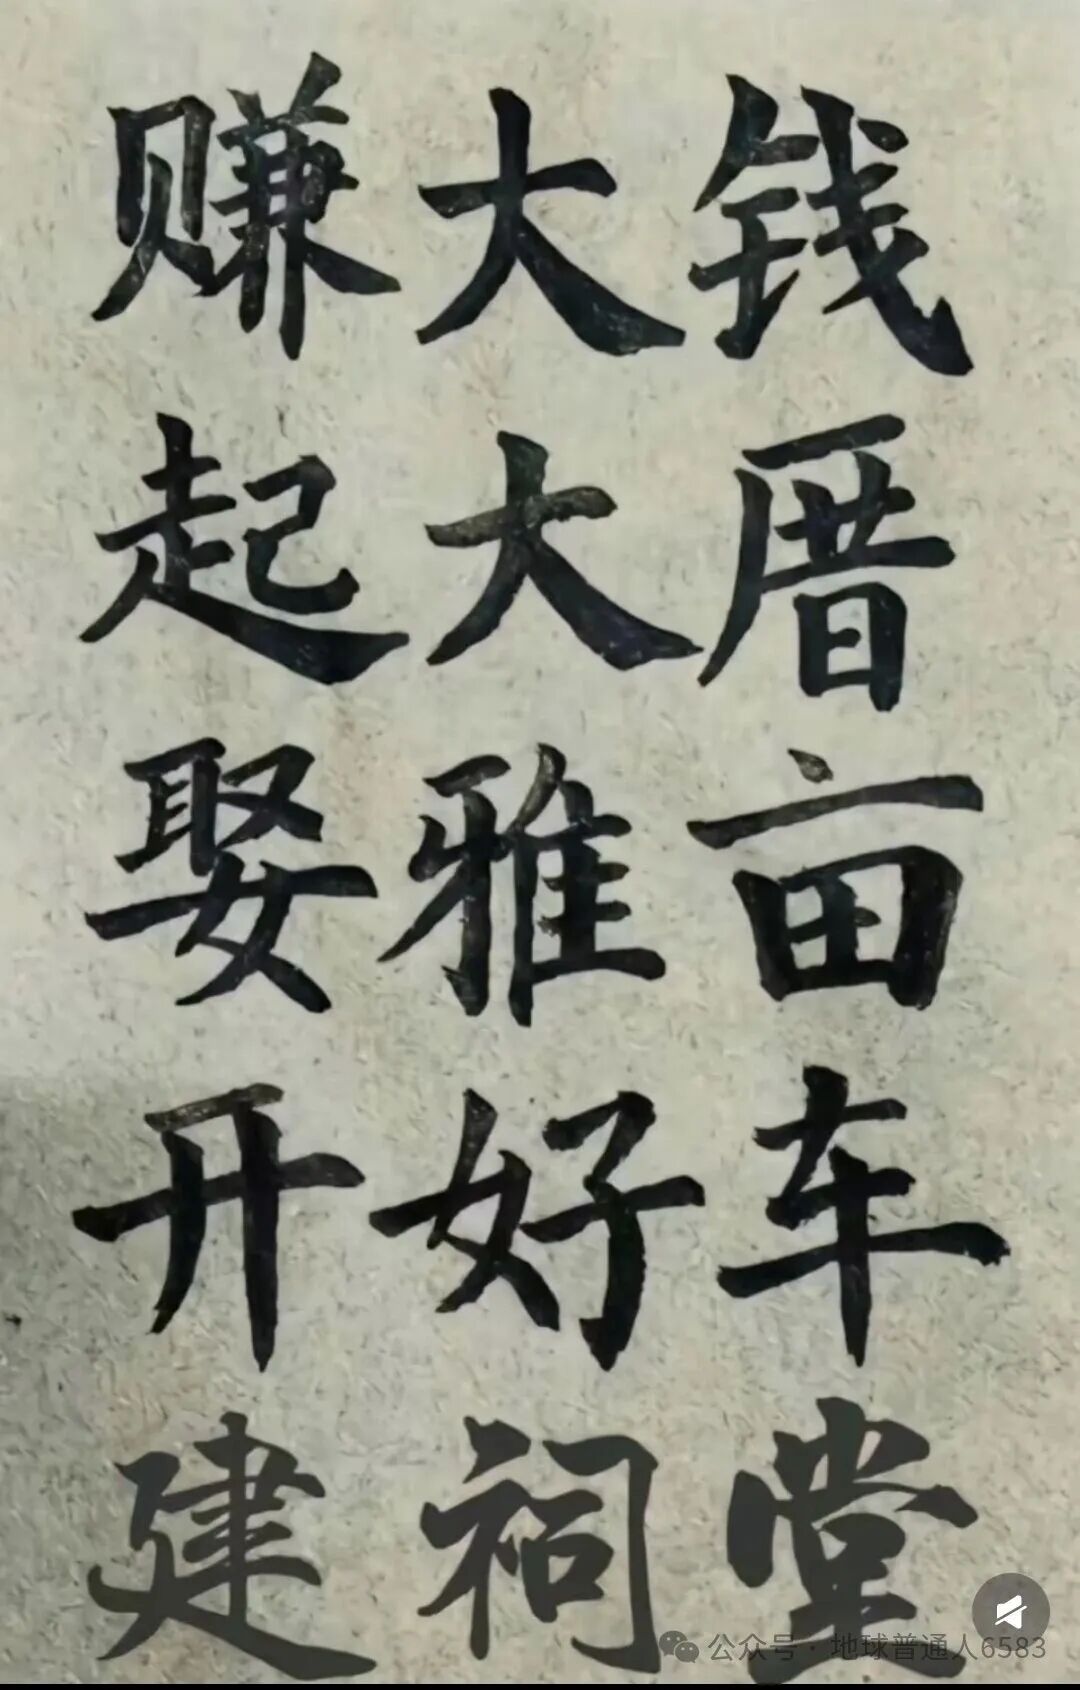 赚大钱
起大厝
娶雅亩
开好车
建祠堂
公众号·地球普通人6583